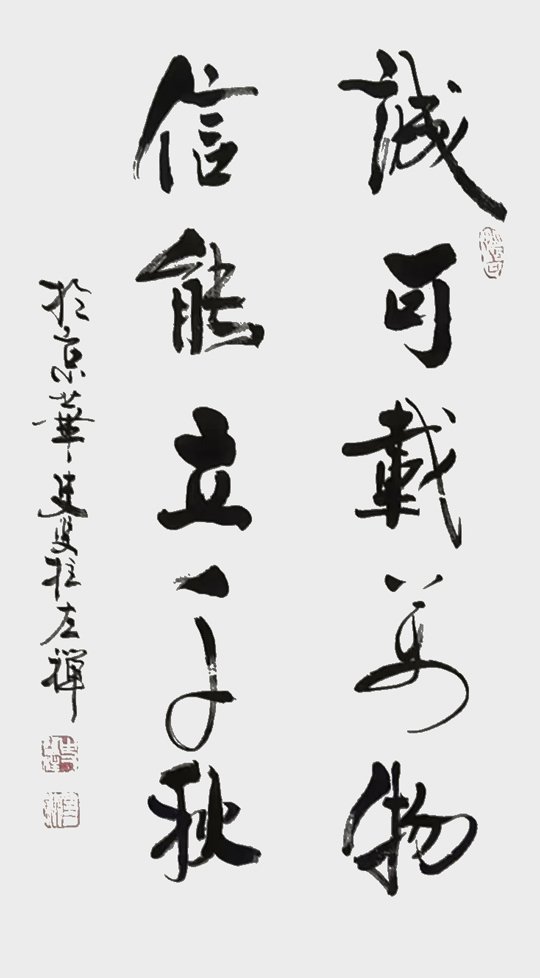 誠可載萬物
信能立千秋
於京華建
左禪